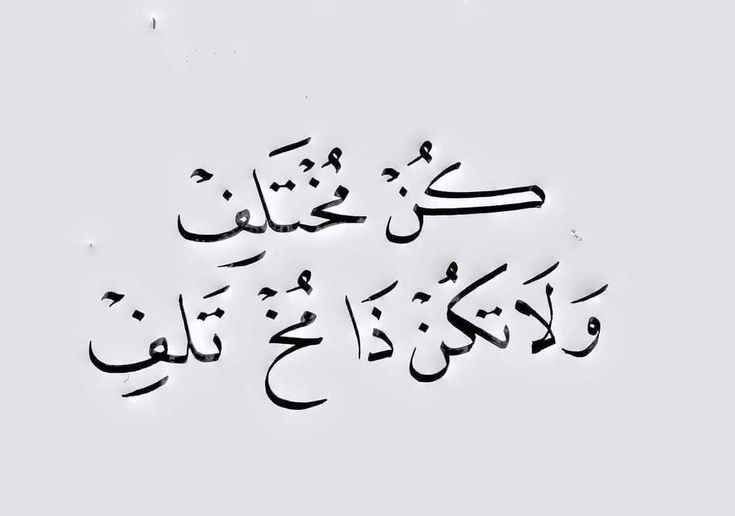 كُنْ مُخْتَلِفْ
وَلَا تَكُنْ ذَا مُخْ تَلِفْ